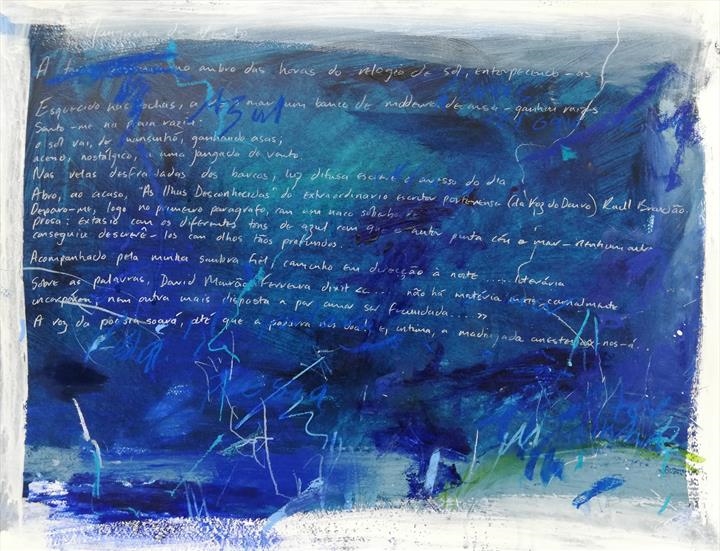 Jangada de Vento
A tarde ombro das horas do relógio de sol, entorpecendo-as
Esquecido nas rochas, a mar, um banco de madeira de casa - ganhou raízes
Sento-me na praia vazia:
o sol vai, de mansinho, ganhando asas;
aceno, nostálgico, a uma jangada de vento
Nas velas desfraldadas dos barcos, luz difusa escreve o avesso do dia
Abro, ao acaso, "As Ilhas Desconhecidas" do extraordinário escritor portuense (da Foz do Douro) Raul Brandão.
Deparo-me, logo no primeiro parágrafo, com um naco de
prosa: Extasio com os diferentes tons de azul com que o autor pinta céu e mar - nenhum outro
conseguiu descrevê-los com olhos tãos profundos.
Acompanhado pela minha sombra fiel, caminho em direcção à noite ...... literária
Sobre as palavras, David Mourão Ferreira dixit «... não há matéria mais carnalmente
incorpórea; nem outra mais disposta a por amor ser fecundada...»
A voz da poesia soará, até que a nos doa. E, ultima, a madrugada anestesiar-nos-á.